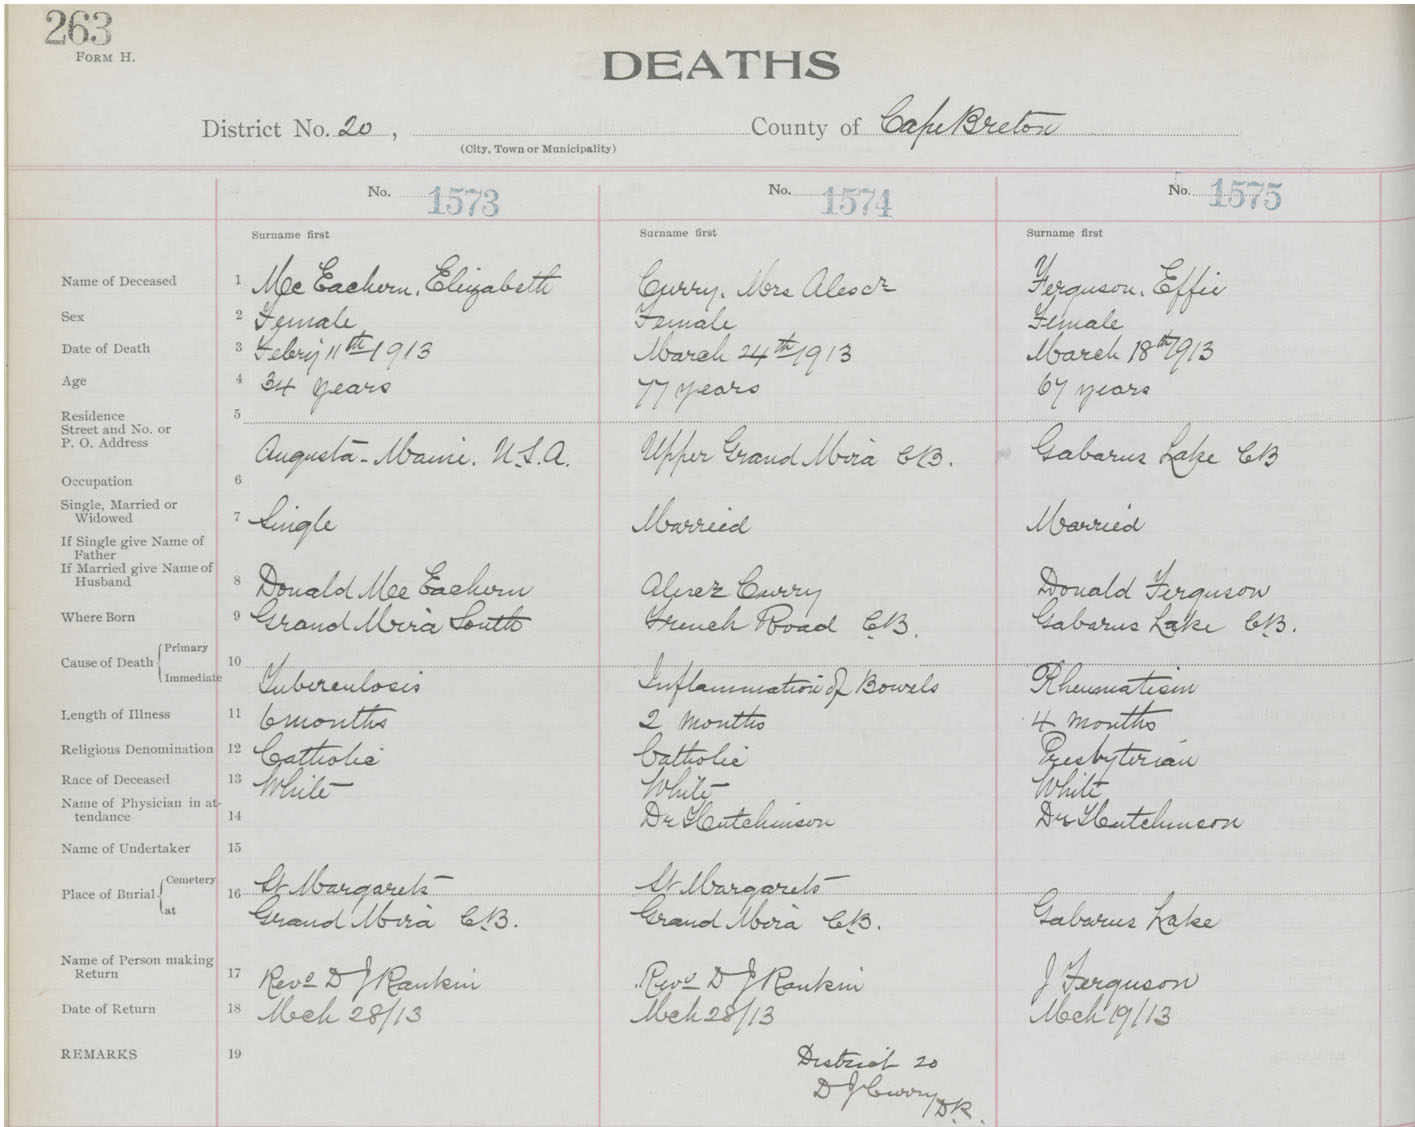 263
FORM H.
DEATHS
District No. 20 , County of Cape Breton
(City, Town or Municipality)
No. 1573 No. 1574 No. 1575
Surname first Surname first Surname first
Name of Deceased 1 Mc Eachern, Elizabeth Curry, Mrs Ferguson, Effie
Sex 2 Female Female Female
Date of Death 3 Febry 11th 1913 March 24th 1913 March 18th 1913
Age 4 34 years 77 years 67 years
Residence 5
Street and No. or
P. O. Address Augusta - Maine. U.S.A. Upper Grand Mira C.B. Gabarus Lake CB
Occupation 6
Single, Married or
Widowed 7 Single Married Married
If Single give Name of
Father
If Married give Name of
Husband 8 Donald Mc Eachern Curry Donald Ferguson
Where Born 9 Grand Mira South French Road C.B. Gabarus Lake C.B.
Cause of Death Primary 10
Immediate Tuberculosis Inflammation of Bowels Rheumatism
Length of Illness 11 6 months 2 months 4 months
Religious Denomination 12 Catholic Catholic Presbyterian
Race of Deceased 13 White White White
Name of Physician in at-
tendance 14 Dr Hutchinson Dr Hutchinson
Name of Undertaker 15
Place of Burial Cemetery 16 St Margarets St Margarets
at Grand Mira C.B. Grand Mira C.B. Gabarus Lake
Name of Person making
Return 17 Revd D J Rankin Revd D J Rankin J Ferguson
Date of Return 18 Mch 28/13 Mch 28/13 Mch 19/13
REMARKS 19 District 20
D J Curry D.R.